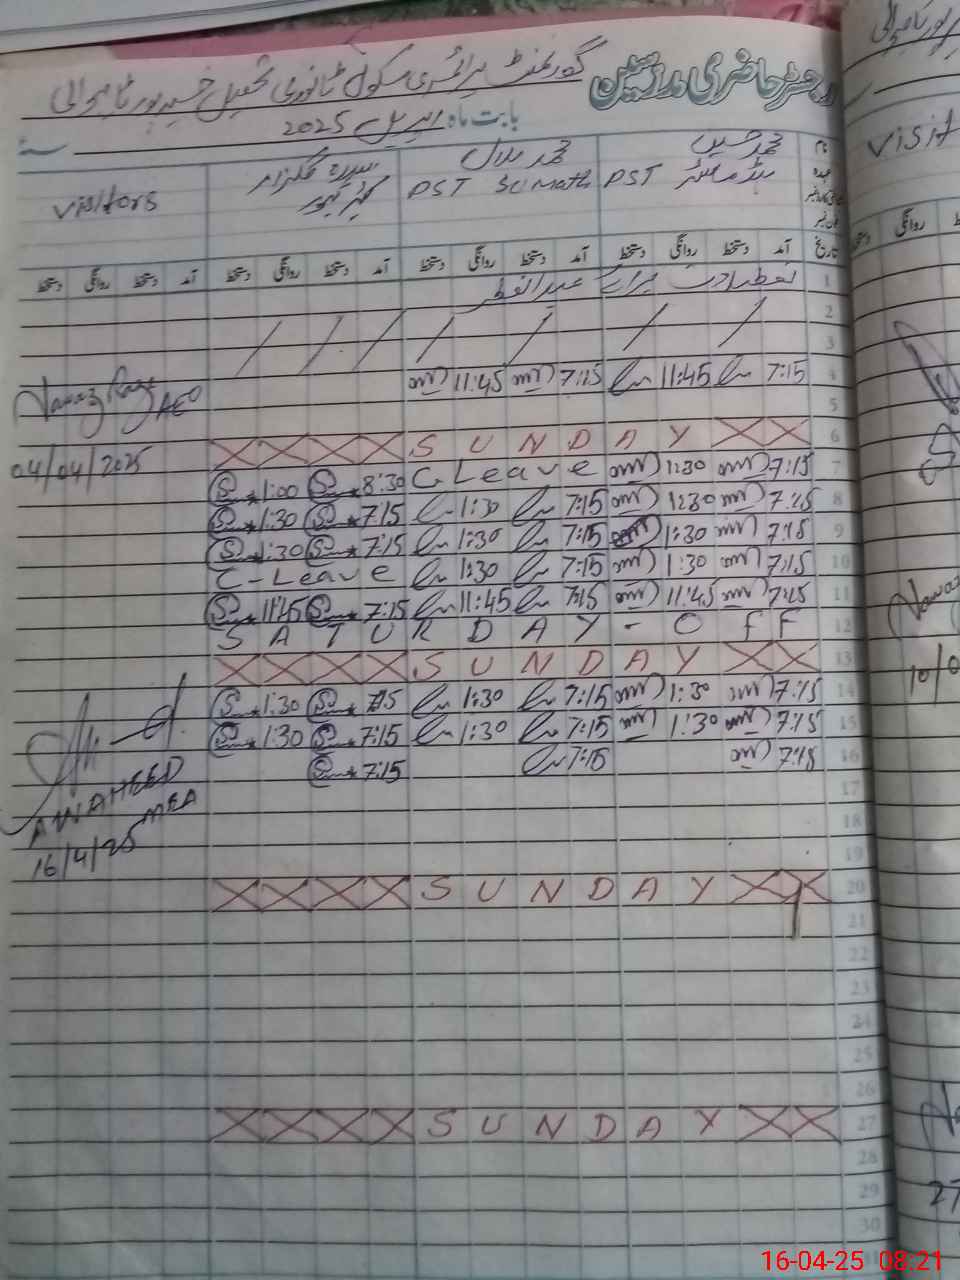 رجسٹر حاضری مدرسین گورنمنٹ پرائمری سکول تحصیل خیرپور ٹامیوالی
بابت ماہ اپریل 2025
نام محمد حسین محمد بلال visitors
عہدہ ہیڈ ماسٹر PST PST Sci Math
تاریخ آمد دستخط روانگی دستخط آمد دستخط روانگی دستخط آمد دستخط روانگی دستخط آمد دستخط روانگی دستخط
1 تعطیلات برائے عیدالفطر
2
3
4 7:15 11:45 7:15 11:45
AEO
5
6 SUNDAY
04/04/2025
7 7:15 1:30 C Leave 8:30 1:00
8 7:15 1:30 7:15 1:30 7:15 1:30
9 7:15 1:30 7:15 1:30 7:15 1:30
10 7:15 1:30 7:15 1:30 C-Leave
11 7:15 11:45 7:15 11:45 7:15 11:45
12 SATURDAY-OFF
13 SUNDAY
14 7:15 1:30 7:15 1:30 7:15 1:30
15 7:15 1:30 7:15 1:30 7:15 1:30
16 7:15 7:15 7:15
A WAHEED
MEA
17
18
16/4/25
19
20 SUNDAY
21
22
23
24
25
26
27 SUNDAY
28
29
30
visit
روانگی
10/0
27
16-04-25 08:21